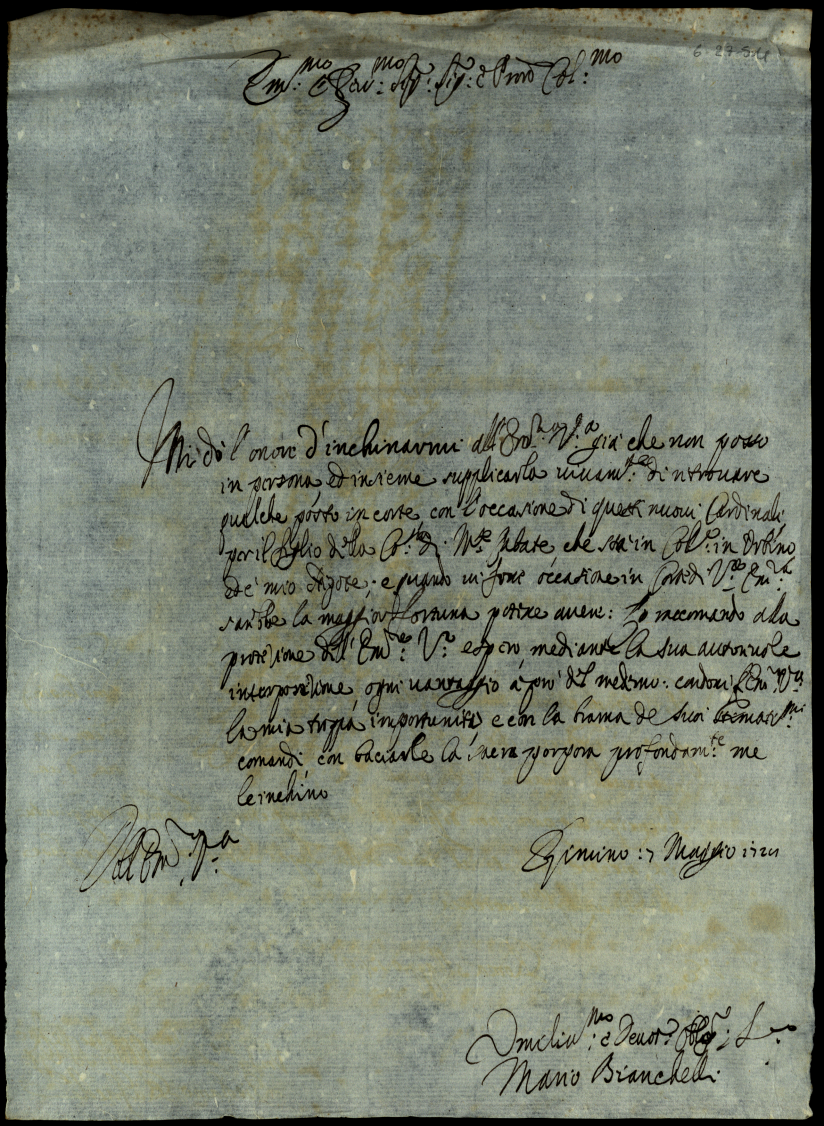 Em.mo e Rev.mo Sig. Sig. e Pron Col.mo
Mi dò l'onore d'inchinarmi all'Em.a V.a già che non posso
in persona, ed insieme supplicarla vivam.te di ritrovare
qualche posto in corte con l'occasione di questi nuovi Cardinali
per il figlio della Co. di Abate, che sta in Col.o in Urbino
ed è mio Nipote; e quando vi fosse occasione in Corte di V.a Em.za
sarebbe la maggior fortuna potesse avere: Lo raccomando alla
protezione dell'Em.a V.a e spero mediante la sua autorevole
interposizione ogni vantaggio à prò del medemo: condoni l'Em.a V.a
la mia troppa importunità e con la brama de suoi stimatis.mi
comandi con baciarle la sacra porpora profondam.te me
le inchino
Dell'Em. V.a
Rimino: 7 Maggio 1721
Umiliss.mo e Devot.o Obblig.
Mario Bianchelli